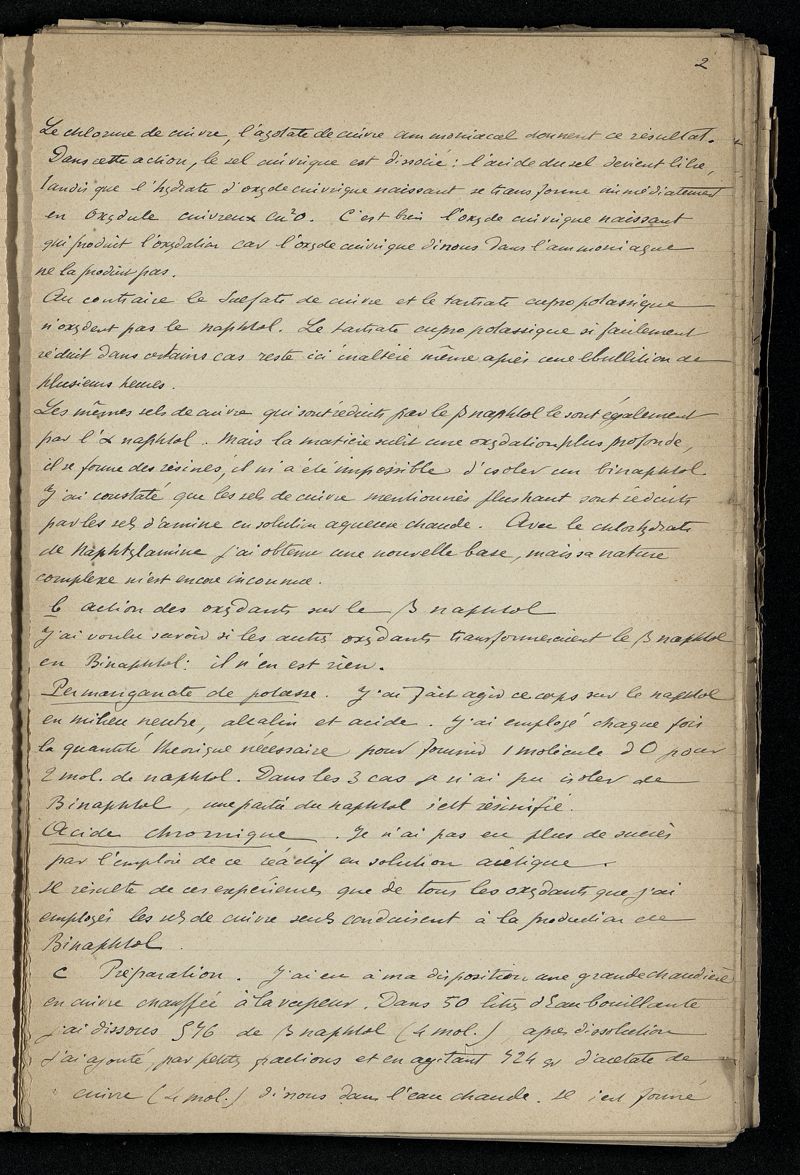 2
Le chlorure de cuivre, l'azotate de cuivre ammoniacal donnent ce résultat.
Dans cette action, le sel cuivrique est dissocié : l'acide du sel devient libre,
tandis que l'hydrate d'oxyde cuivrique naissant se transforme immédiatement
en oxydule cuivreux cu²O. C'est bien l'oxyde cuivrique naissant
qui produit l'oxydation car l'oxyde cuivrique dissous dans l'ammoniaque
ne la produit pas.
Au contraire le sulfate de cuivre et le tartrate cupro potassique
n'oxydent pas le naphtol. Le tartrate cupro potassique si facilement
réduit dans certains cas reste ici inaltéré même après une ébullition de
plusieurs heures.
Les mêmes sels de cuivre qui sont réduits par le β naphtol le sont également
par l'α naphtol. Mais la matière subit une oxydation plus profonde,
il se forme des résines, il m'a été impossible d'isoler un binaphtol.
J'ai constaté que les sels de cuivre mentionnés plus haut sont réduits
par les sels d'amine en solution aqueuse chaude. Avec le chlorhydrate
de Naphtylamine j'ai obtenu une nouvelle base, mais sa nature
complexe m'est encore inconnue.
b action des oxydants sur le β naphtol
J'ai voulu savoir si les autres oxydants transformeraient le β naphtol
en Binaphtol : il n'en est rien.
Permanganate de potasse. J'ai fait agir ce corps sur le naphtol
en milieu neutre, alcalin et acide. J'ai employé chaque fois
la quantité théorique nécessaire pour fournir 1 molécule d'O pour
2 mol. de naphtol. Dans les 3 cas je n'ai pu isoler de
Binaphtol, une partie du naphtol s'est résinifié.
Acide chromique. Je n'ai pas eu plus de succès
par l'emploi de ce réactif en solution acétique.
Il résulte de ces expériences que de tous les oxydants que j'ai
employés les sels de cuivre seuls conduisent à la production de
Binaphtol.
C Préparation. J'ai eu à ma disposition une grande chaudière
en cuivre chauffée à la vapeur. Dans 50 lit. d'Eau bouillante
j'ai dissous 576 de β naphtol (4 mol.) après dissolution
j'ai ajouté, par petites fractions et en agitant 724 gr d'acétate de
cuivre (4 mol.) dissous dans l'eau chaude. Il s'est formé